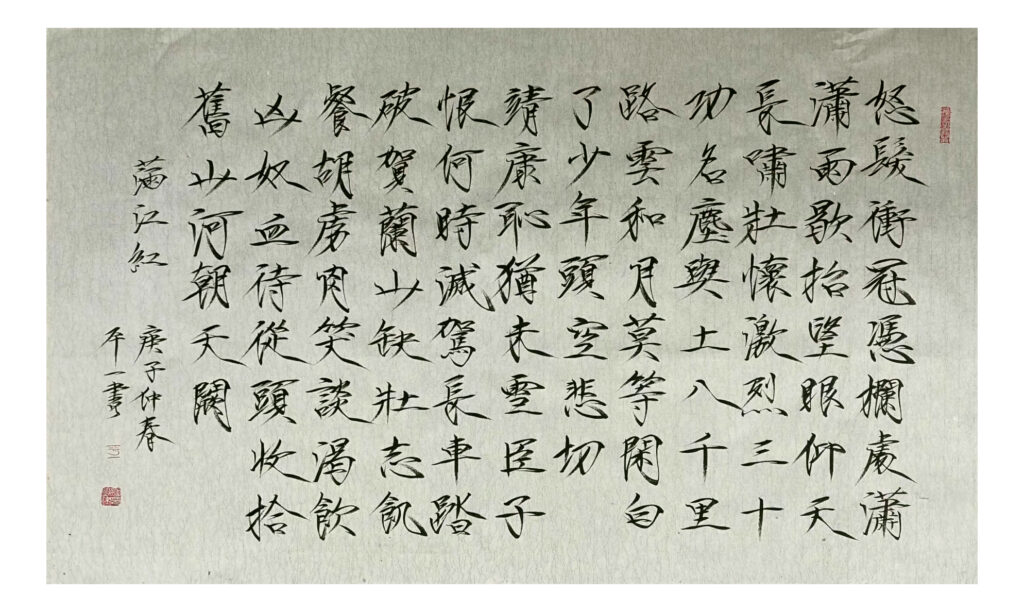 怒髮衝冠憑欄處瀟
瀟雨歇抬望眼仰天
長嘯壯懷激烈三十
功名塵與土八千里
路雲和月莫等閑白
了少年頭空悲切
靖康恥猶未雪臣子
恨何時滅駕長車踏
破賀蘭山缺壯志飢
餐胡虜肉笑談渴飲
凶奴血待從頭收拾
舊山河朝天闕
滿江紅 庚子仲春
平一書